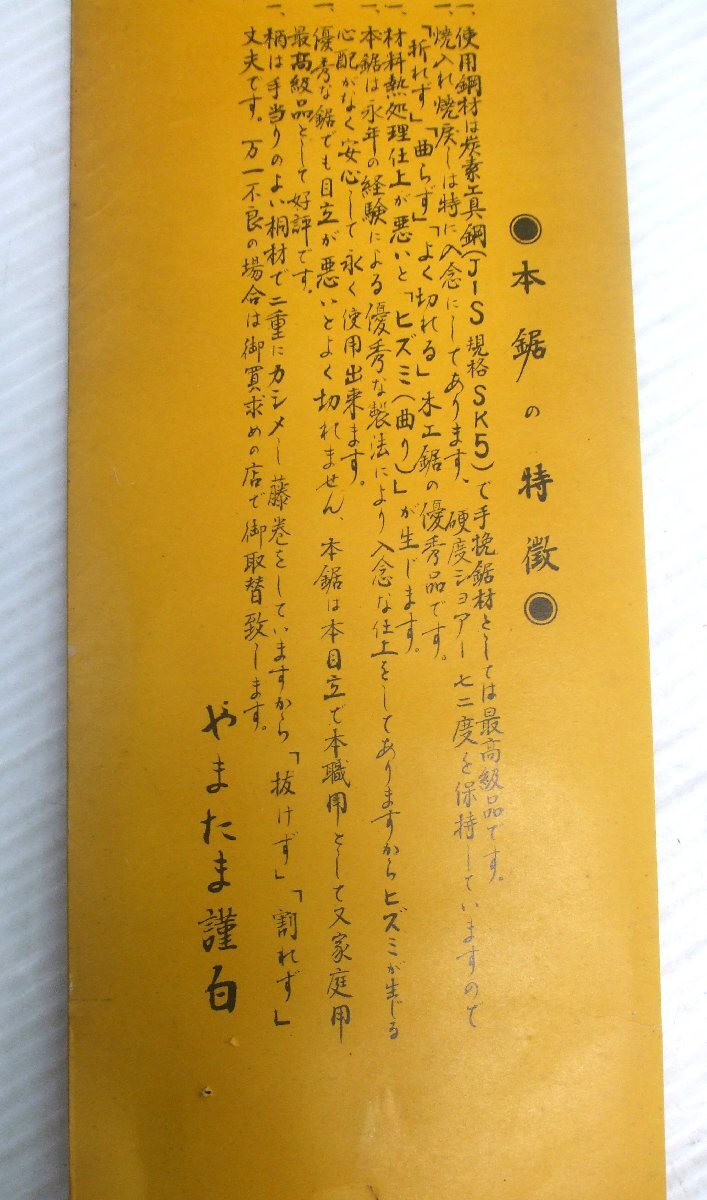 ◉本鋸の特徴◉
一、使用鋼材は炭素工具鋼(JIS規格SK5)で手挽鋸材としては最高級品です。
一、焼入れ焼戻しは特に入念にしてあります、硬度ショアー七二度を保持していますので
「折れず」「曲らず」「よく切れる」木工鋸の優秀品です。
一、材料熱処理仕上が悪いと「ヒズミ(曲り)」が生じます。
一、本鋸は永年の経験による優秀な製法により入念な仕上をしてありますからヒズミが生じる
心配がなく安心して永く使用出来ます。
一、優秀な鋸でも目立が悪いとよく切れません、本鋸は本目立で本職用として又家庭用
最高級品として好評です。
一、柄は手当りのよい桐材で二重にカシメし藤巻をしていますから「抜けず」「割れず」
丈夫です。万一不良の場合は御買求めの店で御取替致します。
やまたま謹白